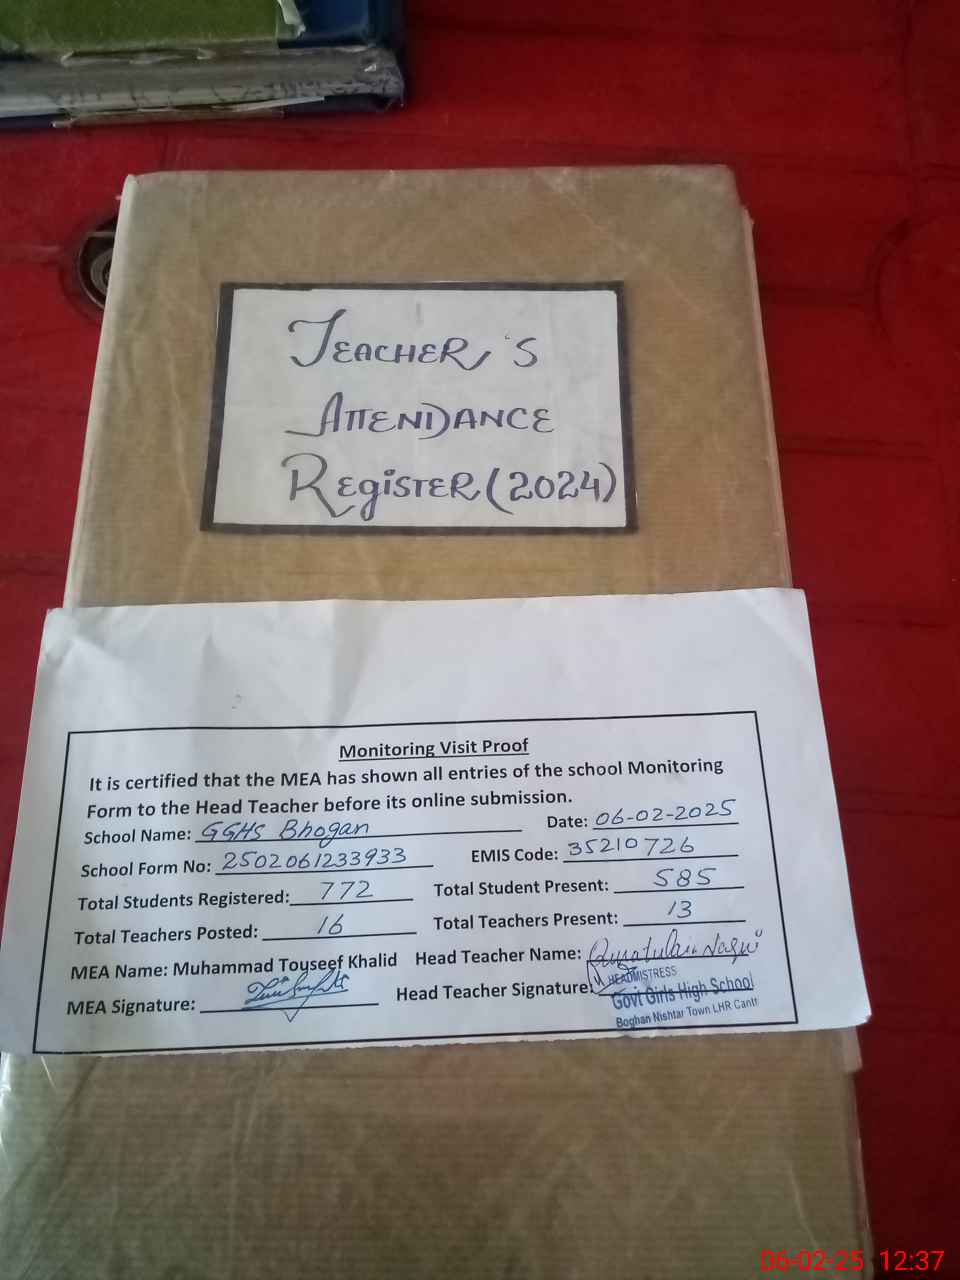 TEACHER'S
ATTENDANCE
REGISTER (2024)
Monitoring Visit Proof
It is certified that the MEA has shown all entries of the school Monitoring
Form to the Head Teacher before its online submission.
School Name: GGHS Bhogan Date: 06-02-2025
School Form No: 2502061233933 EMIS Code: 35210726
Total Students Registered: 772 Total Student Present: 585
Total Teachers Posted: 16 Total Teachers Present: 13
MEA Name: Muhammad Touseef Khalid Head Teacher Name: Naqvi
MEA Signature: Head Teacher Signature:
HEADMISTRESS
Govt Girls High School
Boghan Nishtar Town LHR Cantt
06-02-25 12:37